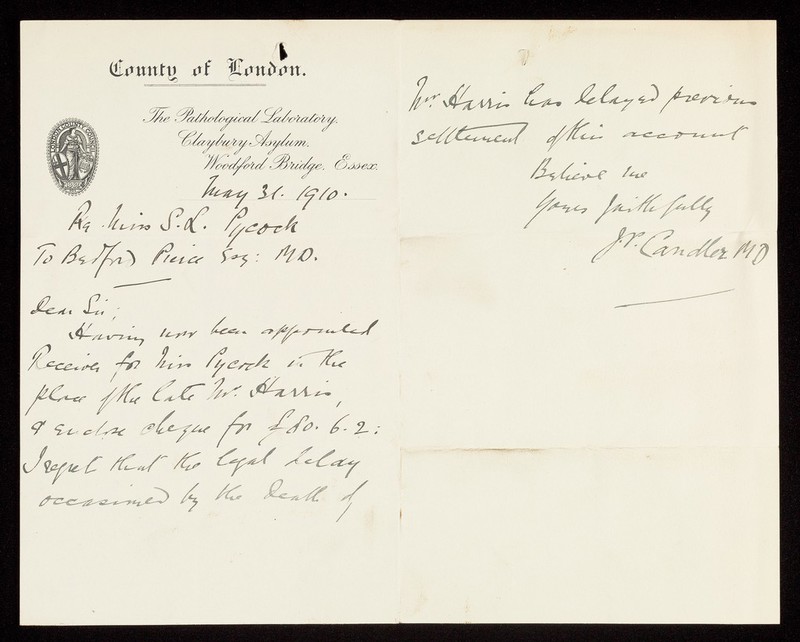 County of London.
The Pathological Laboratory.
Claybury Asylum.
Woodford Bridge. Essex.
May 31. 1910.
Re Miss S. L. Pycock
To Bedford Pierce Esq: M.D.
Dear Sir;
Having now been appointed
Receiver for Miss Pycock in the
place of the late Mr. Harris,
I enclose cheque for £80. 6. 2:
I regret that the legal delay
occasioned by the death of
Mr Harris has delayed previous
settlement of this account
Believe me
Yours faithfully
J.P. Candler MD